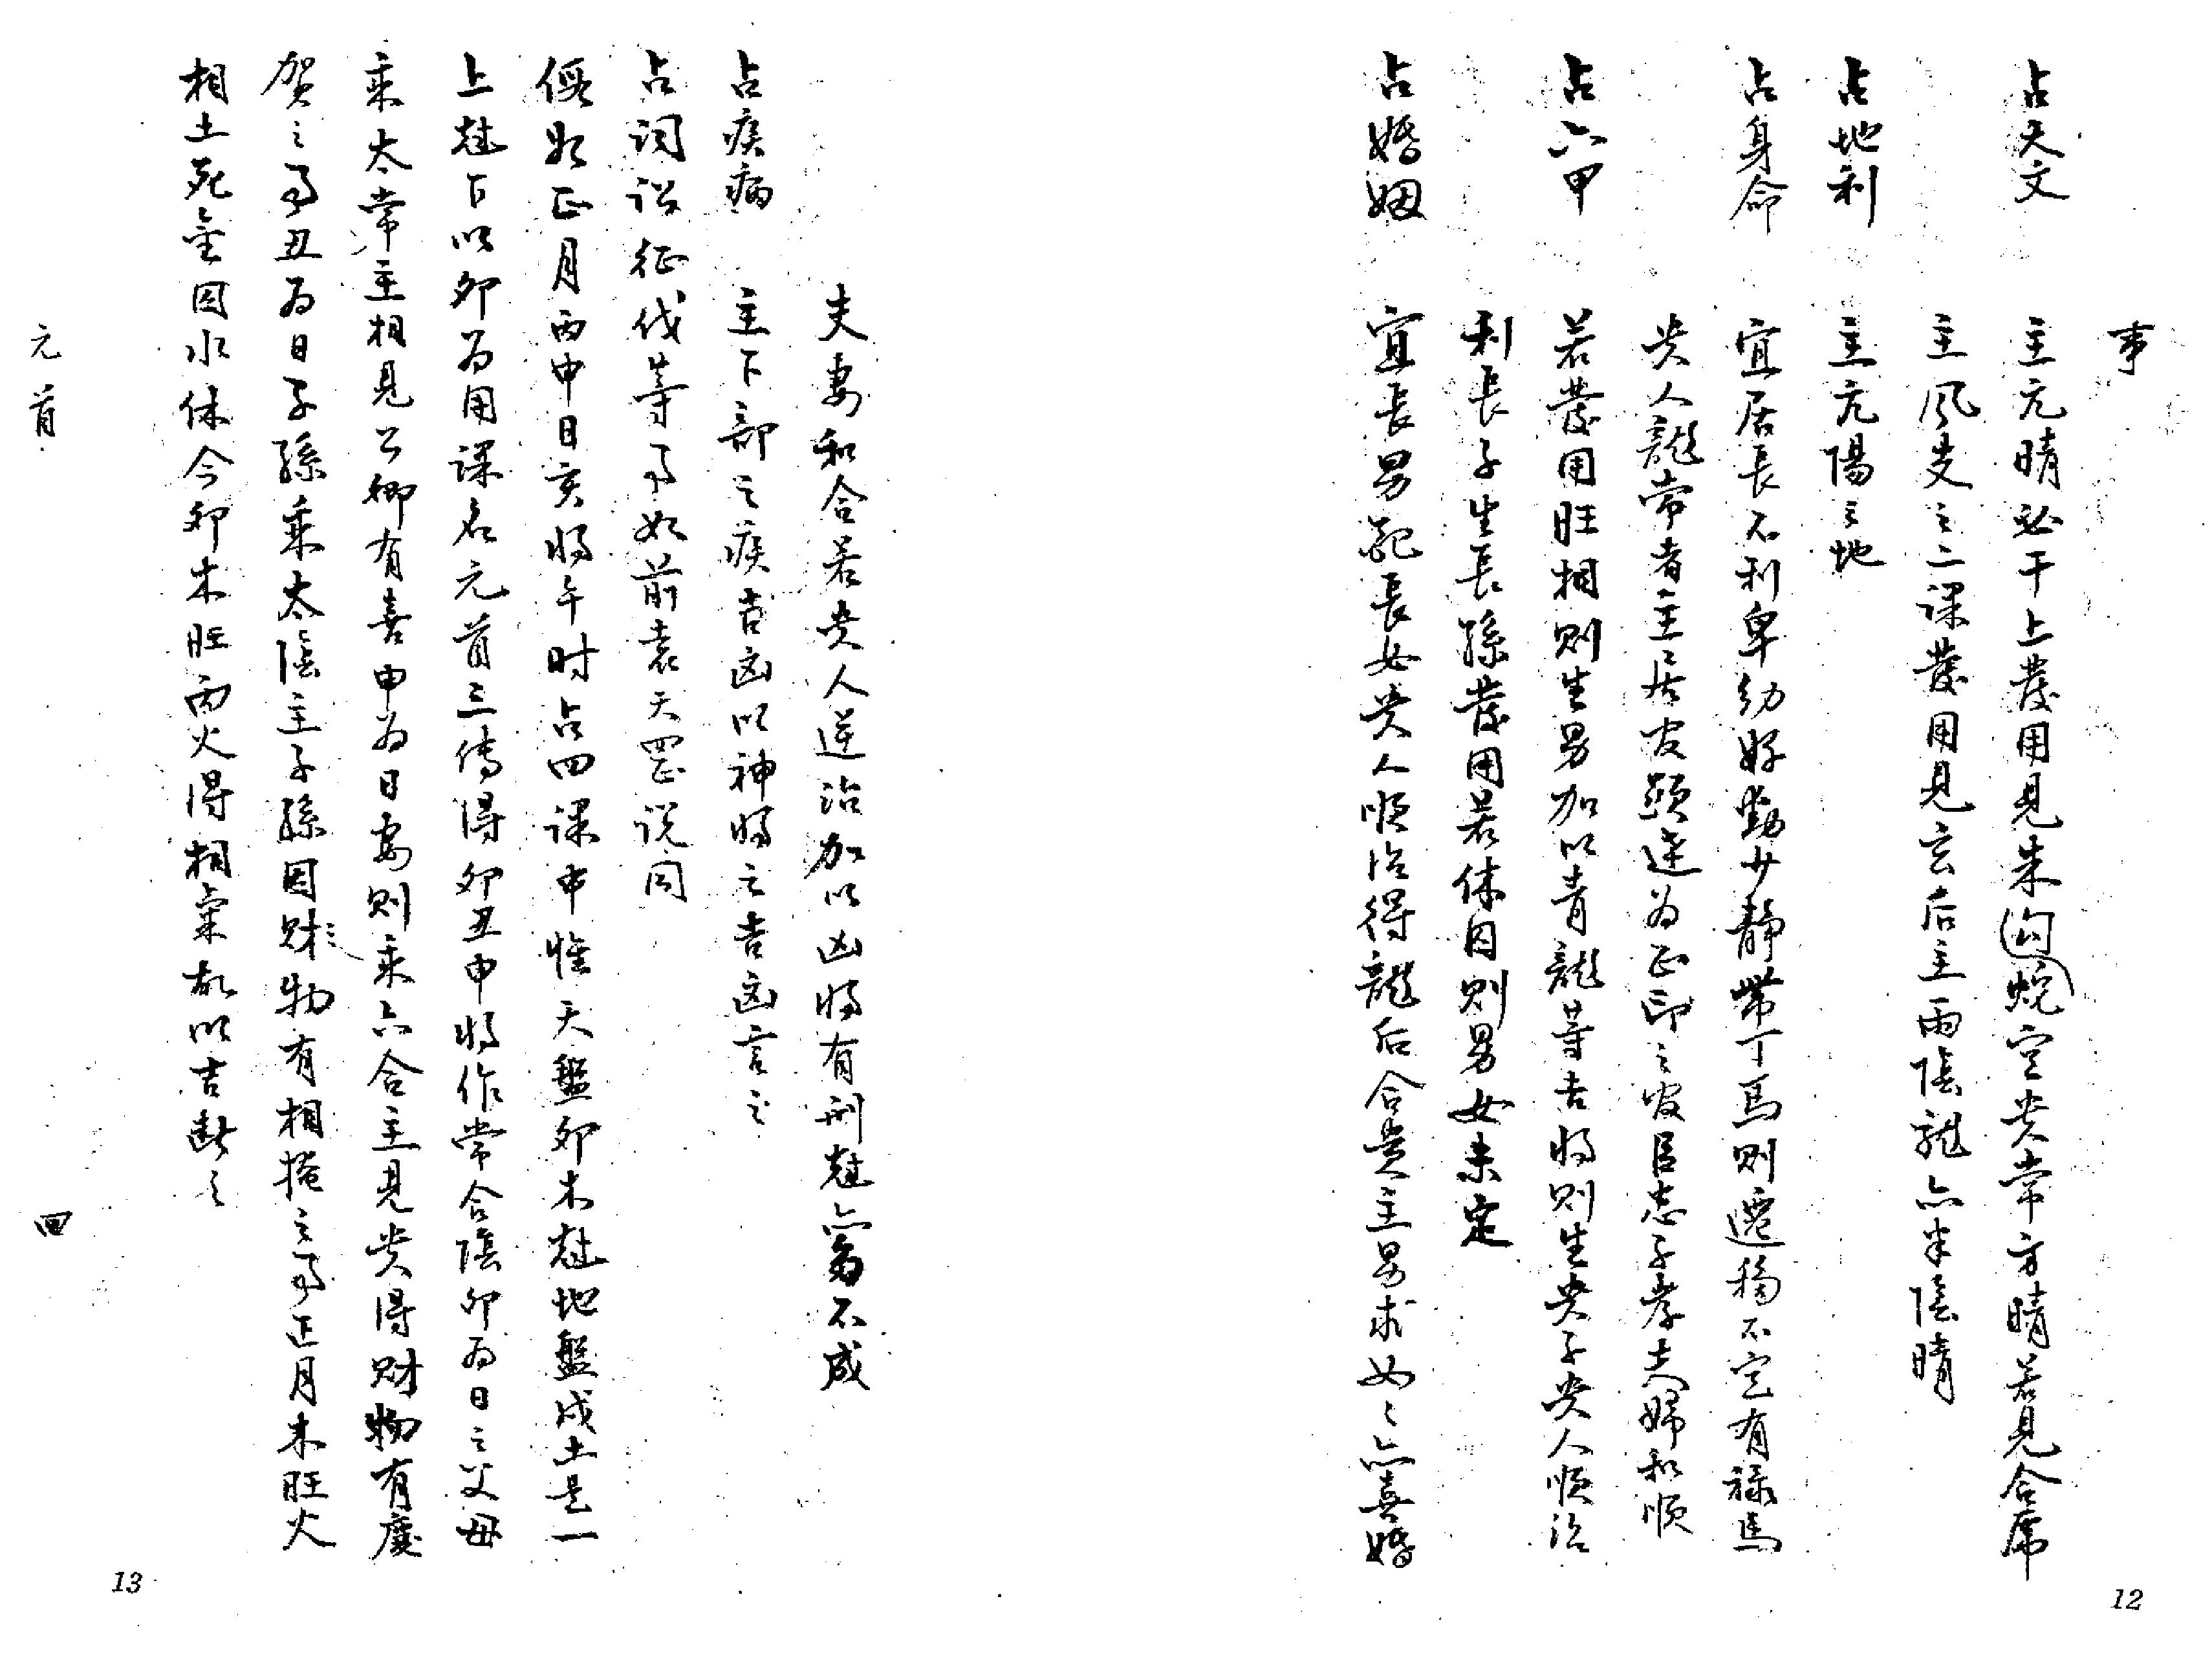 事
占天文 主亢晴必干上發用見朱勾蛇空貴常方晴若見合虎
主風支之二課發用見玄后主雨陰龍亦半陰晴
占地利 主亢陽之地
占身命 宜居長不利卑幼好動少靜帶丁馬則遷移不定有祿馬
貴人龍常者主居官顯達為正印之官臣忠子孝夫婦和順
占六甲 若發用旺相則生男加以青龍等吉將則生貴子貴人順治
利長子生長孫發用若休囚則男女未定
占婚姻 宜長男配長女貴人順治得龍后合貴主男求女之亦喜婚
12
夫妻和合若貴人逆治加以凶將有刑尅亦不成
占疾病 主下部之疾吉凶以神將之吉凶言之
占詞訟征伐等事如前袁天罡说同
假如正月丙申日亥將午时占四課中惟天盤卯木尅地盤戌土是一
上尅下以卯为用課名元首三傳得卯丑申將作常合陰卯为日之父母
乘太常主相見公卿有喜申为日妻則乘六合主見貴得财物有慶
贺之事丑为日子孫乘太陰主子孫因财物有相掩之事正月木旺火
相土死金囚水休今卯木旺丙火得相氣故以吉断之
元首
四
13